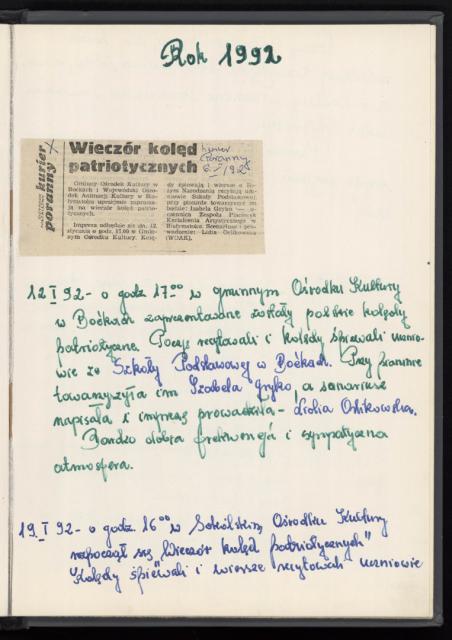 Rok 1992
kurier
poranny
Wieczór kolęd
patriotycznych
Kurier
Poranny
6.I/92
Gminny Ośrodek Kultury w
Boćkach i Wojewódzki Ośro-
dek Animacji Kultury w Bia-
łymstoku uprzejmie zaprasza-
ją na wieczór kolęd patrio-
tycznych.
Impreza odbędzie się dn. 12
stycznia o godz. 17.00 w Gmin-
nym Ośrodku Kultury. Kolę-
dy śpiewają i wiersze o Bo-
żym Narodzeniu recytują ucz-
niowie Szkoły Podstawowej,
przy pianinie towarzyszyć im
będzie: Izabela Gryko — u-
czennica Zespołu Placówek
Kształcenia Artystycznego w
Białymstoku. Scenariusz i pro-
wadzenie: Lidia Orlikowska
(WOAK).
12 I 92 - o godz 17⁰⁰ w gminnym Ośrodku Kultury
w Boćkach zaprezentowane zostały polskie kolędy
patriotyczne. Poezję recytowali i kolędy śpiewali ucznio-
wie ze Szkoły Podstawowej w Boćkach. Przy pianinie
towarzyszyła im Izabela Gryko, a scenariusz
napisała i imprezę prowadziła - Lidia Orlikowska.
Bardzo dobra frekwencja i sympatyczna
atmosfera.
19. I 92 - o godz. 16⁰⁰ w Sokólskim Ośrodku Kultury
rozpoczął się "Wieczór kolęd patriotycznych"
Kolędy śpiewali i wiersze recytowali uczniowie